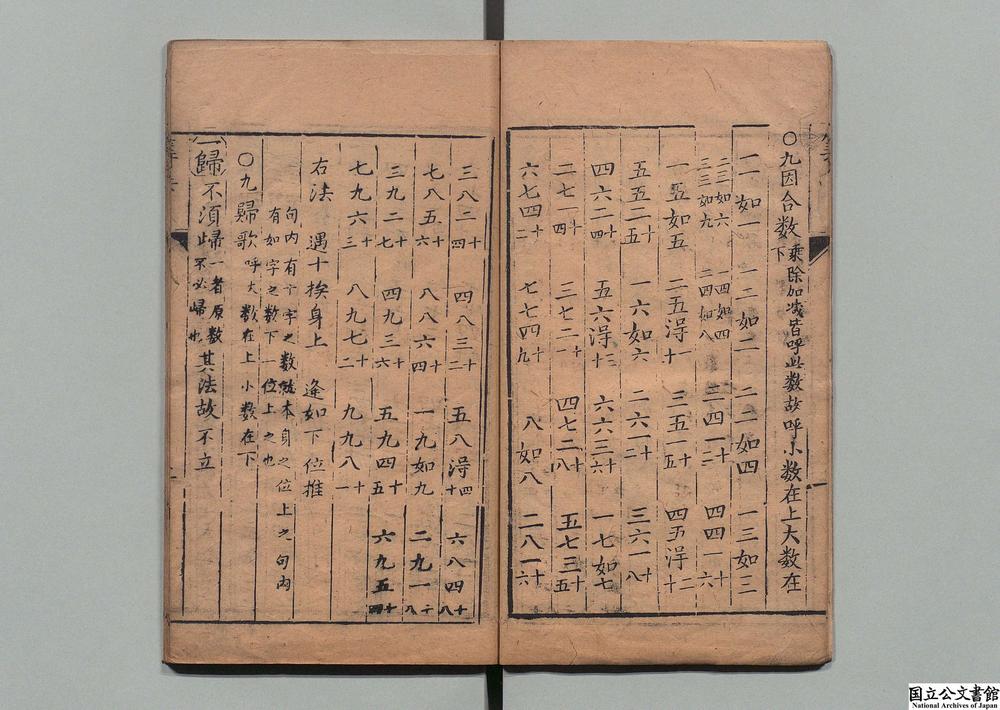 ○九因合数 乘除加减皆呼此数故呼小数在上大数在下
一一如一 一二如二 二二如四 一三如三
二三如六 三三如九 一四如四 二四如八 三四一十二 四四一十六
一五如五 二五得一十 三五一十五 四五得二十
五五二十五 一六如六 二六一十二 三六一十八
四六二十四 五六得三十 六六三十六 一七如七
二七一十四 三七二十一 四七二十八 五七三十五
六七四十二 七七四十九 一八如八 二八一十六
三八二十四 四八三十二 五八得四十 六八四十八
七八五十六 八八六十四 一九如九 二九一十八
三九二十七 四九三十六 五九四十五 六九五十四
七九六十三 八九七十二 九九八十一
右法 遇十挨身上 逢如下位推
句内有十字之数就本身之位上之句内
有如字之数下一位上之也
○九歸歌 呼大数在上小数在下
一歸不須歸 一者原数不必歸也 其法故不立
国立公文書館
National Archives of Japan